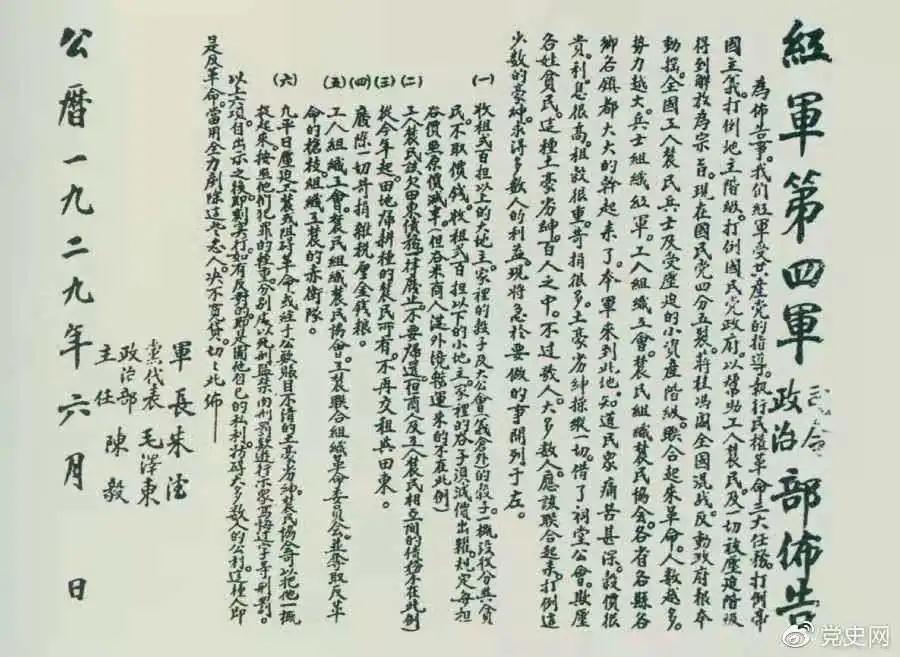 紅軍第四軍司令政治部佈告
為佈告事。我们紅軍受共產党的指導。执行民權革命三大任務。打倒帝
國主義。打倒地主階級。打倒國民党政府。以幫助工人農民及一切被壓迫階級
得到解放為宗旨。現在國民党四分五裂。蔣桂馮閻全國混战。反動政府根本
動搖。全國工人農民兵士及受壓迫的小資產階級。联合起来革命。人數越多。
勢力越大。兵士組織紅軍。工人組織工會。農民組織農民協会。各省各縣各
鄉各鎮都大大的幹起来了。本軍来到此地。知道民眾痛苦甚深。穀價很
貴。利息很高。租穀很重。苛捐很多。土豪劣紳操縱一切。借了祠堂公會。欺壓
各姓貧民。這種土豪劣紳。百人之中。不过数人。大多数人。應該联合起来。打倒這
少数的豪紳。求得多数人的利益。現将急於要做的事開列于左。
(一) 收租式百担以上的大地主。家裡的穀子及大公會(義倉外)的穀子。一概没收分與貧
民。不取價钱。收租式百担以下的小地主。家裡的谷子。須減價出糶。規定每担
谷價照原價減半。(但谷米商人從外境辦運来的不在此例)
(二) 工人農民該欠田東債務。一律廢止。不要歸還。(但商人及工人農民相互间的債務不在此例)
(三) 從今年起。田地歸耕種的農民所有。不再交租與田東。
(四) 廢除一切苛捐雜税厘金錢粮。
(五) 工人組織工會。農民組織農民協會。工農联合組織革命委員会。並夺取反革
命的槍枝。組織工農的赤衛隊。
(六) 凡平日壓迫工農或阻碍革命。或經手公欵賬目不清的土豪劣紳。農民協会可以把他一概
捉起来。按照他们犯罪的輕重。分别處以死刑監禁肉刑罰欵遊行示眾寫悔过字等刑罰。
以上六項。自出示之後。即刻实行。如有反對的。即是圖他自己的私利。妨碍大多数人的公利。這種人即
是反革命。當用全力剷除這些惡人。决不寬貸。切切此佈——
軍長 朱德
党代表 毛澤東
政治部主任 陳毅
公曆一九二九年六月 日
党史网